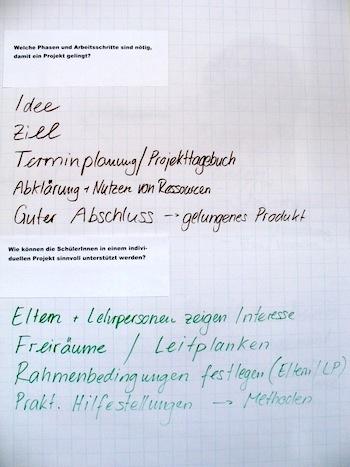 Welche Phasen und Arbeitsschritte sind nötig,
damit ein Projekt gelingt?
Idee
Ziel
Terminplanung/Projekttagebuch
Abklärung + Nutzen von Ressourcen
Guter Abschluss → gelungenes Produkt
Wie können die SchülerInnen in einem indivi-
duellen Projekt sinnvoll unterstützt werden?
Eltern + Lehrpersonen zeigen Interesse
Freiräume / Leitplanken
Rahmenbedingungen festlegen (Eltern/LP)
Prakt. Hilfestellungen → Methoden